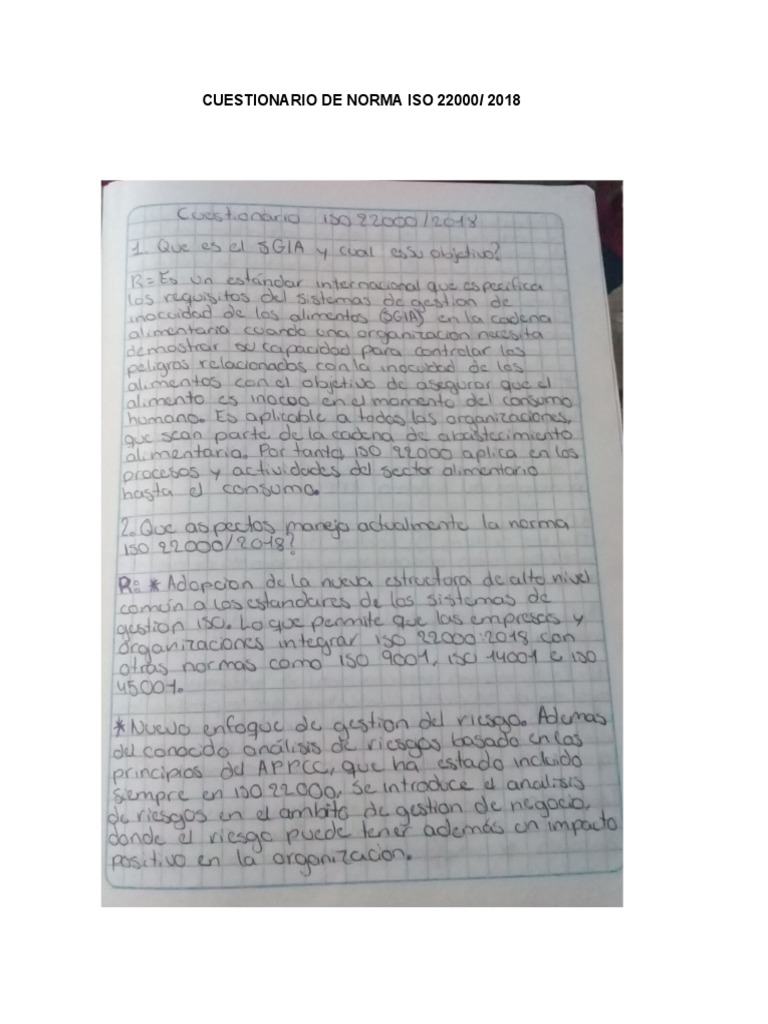 CUESTIONARIO DE NORMA ISO 22000/ 2018
Cuestionario ISO 22000/2018
1. Que es el SGIA y cual es su objetivo?
R= Es un estándar internacional que especifica
los requisitos del sistemas de gestion de
inocuidad de los alimentos (SGIA) en la cadena
alimentaria cuando una organización necesita
demostrar su capacidad para controlar los
peligros relacionados con la inocuidad de los
alimentos con el objetivo de asegurar que el
alimento es inocuo en el momento del consumo
humano. Es aplicable a todas las organizaciones,
que sean parte de la cadena de abastecimiento
alimentaria. Por tanto, ISO 22000 aplica en los
procesos y actividades del sector alimentario
hasta el consumo.
2. Que aspectos maneja actualmente la norma
ISO 22000/2018?
R: * Adopcion de la nueva estructura de alto nivel
común a los estandares de los sistemas de
gestion ISO. Lo que permite que las empresas y
organizaciones integrar ISO 22000:2018 con
otras normas como ISO 9001, ISO 14001 e ISO
45001.
* Nuevo enfoque de gestion del riesgo. Ademas
del conocido análisis de riesgos basado en los
principios del APPCC, que ha estado incluido
siempre en ISO 22000, se introduce el analisis
de riesgos en el ambito de gestion de negocio,
donde el riesgo puede tener además un impacto
positivo en la organización.